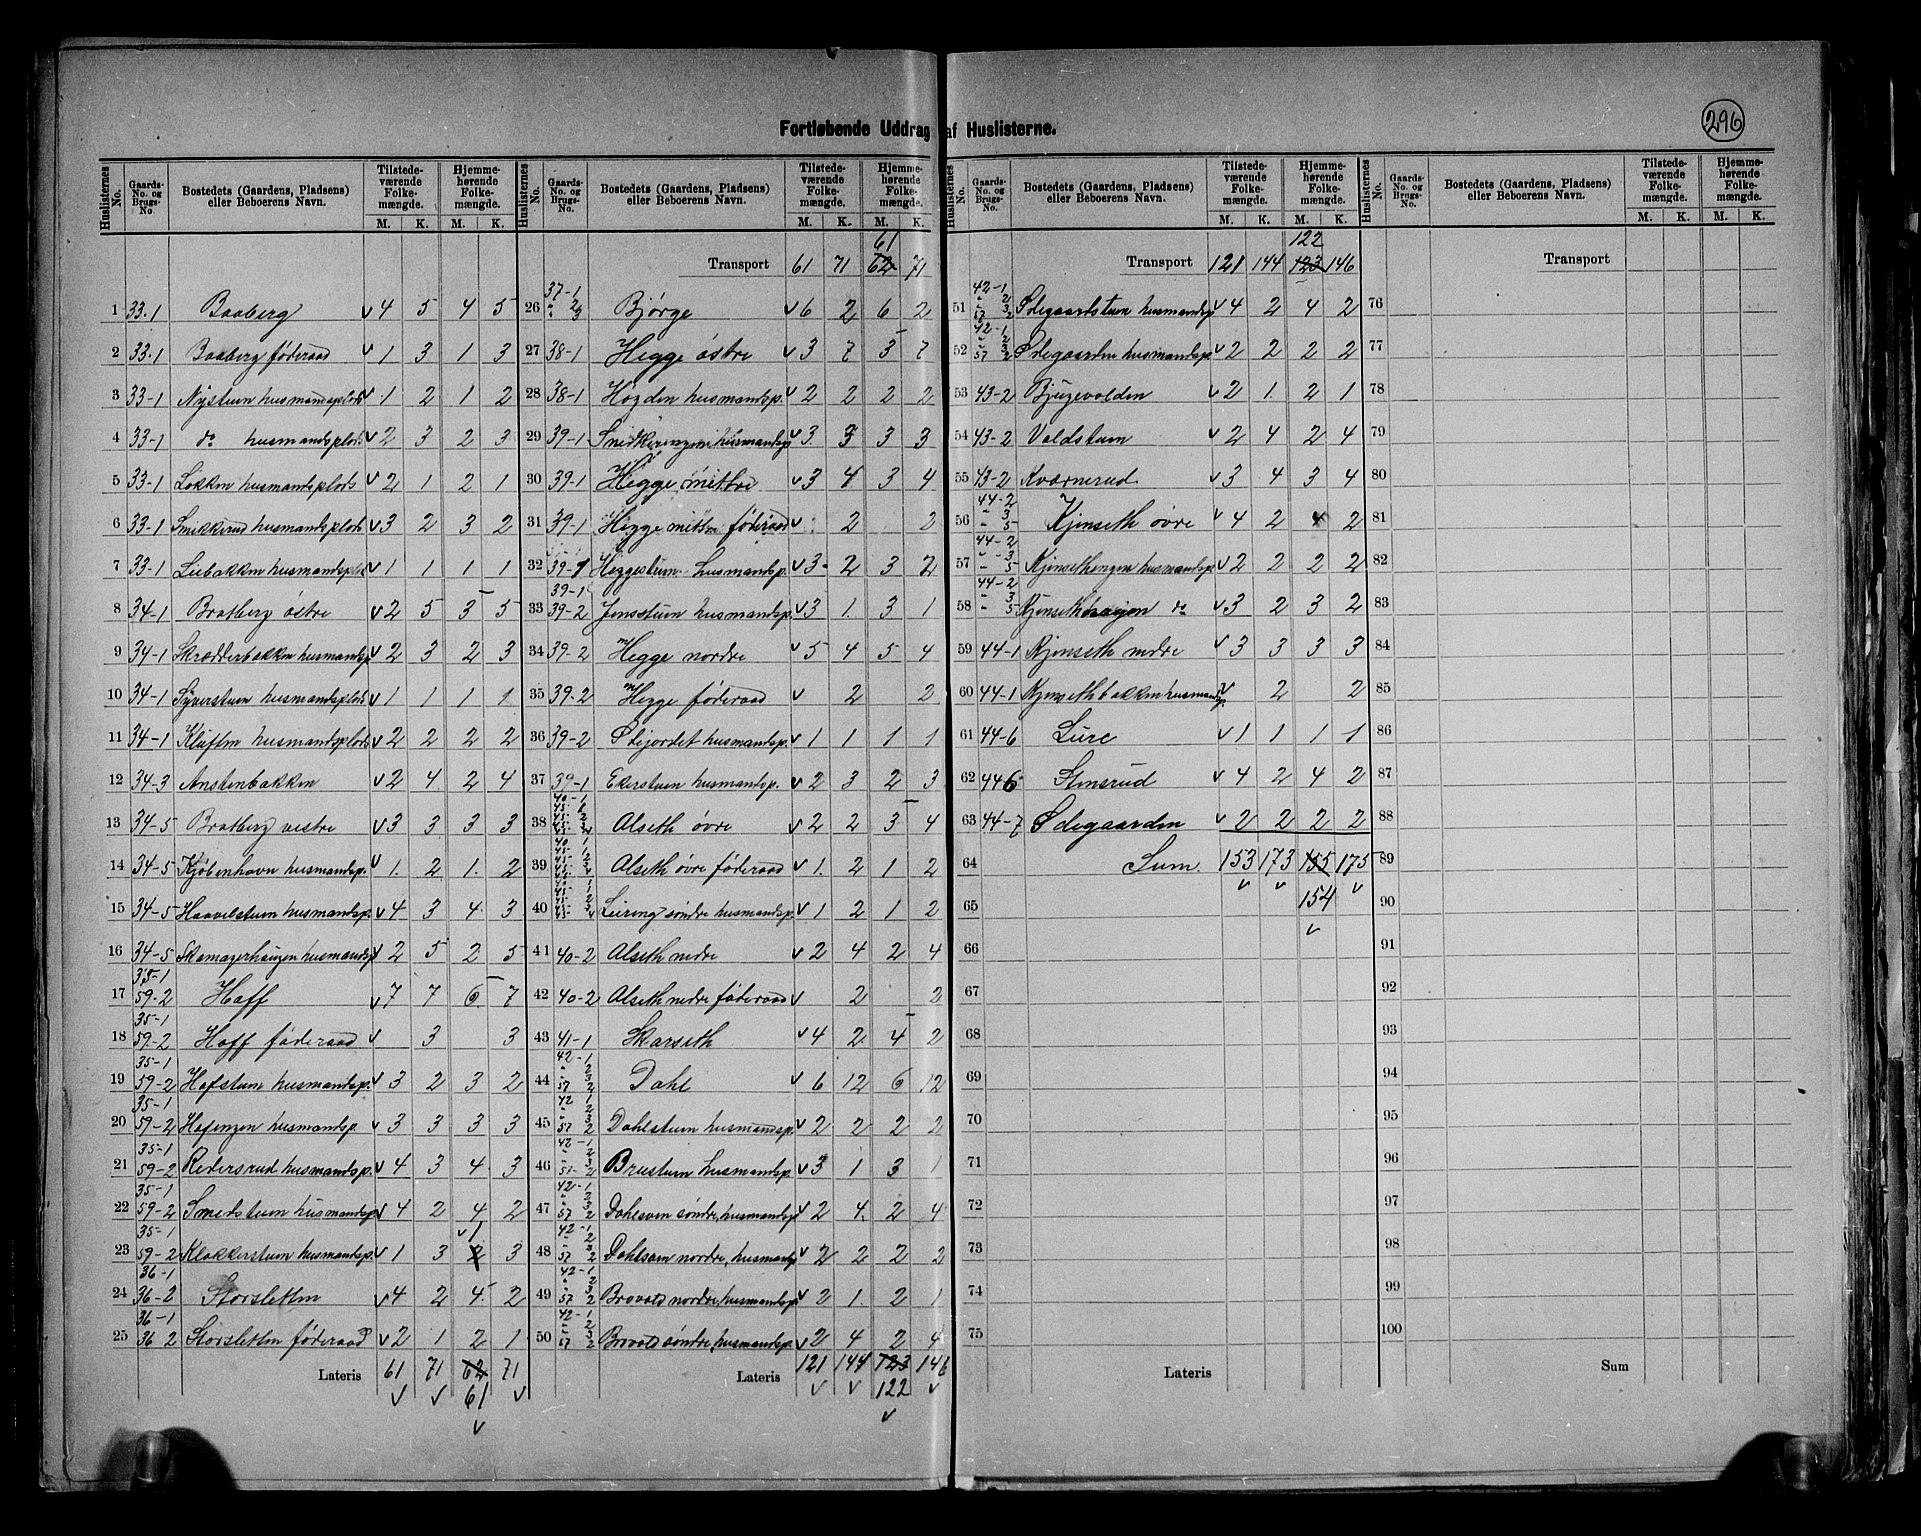 296
Fortløbende Uddrag af Huslisterne.
Huslisternes No. | Gaards-No. og Brugs-No. | Bostedets (Gaardens, Pladsens) eller Beboerens Navn. | Tilstedeværende Folkemængde. M. K. | Hjemmehørende Folkemængde. M. K.
1 33-1 Baaberg v 4 5 4 5
2 33-1 Baaberg føderaad v 1 3 1 3
3 33-1 Nystuen husmandsplads v 1 2 1 2
4 33-1 do husmandsplads v 2 3 2 3
5 33-1 Løkken husmandsplads v 2 1 2 1
6 33-1 Snikkerud husmandsplads v 3 2 3 2
7 33-1 Liebakken husmandsplds v 1 1 1 1
8 34-1 Bratberg østre v 2 5 3 5
9 34-1 Skrædderbakken husmandsp. v 2 3 2 3
10 34-1 Syverstuen husmandsplads v 1 1 1 1
11 34-1 Kluften husmandsplads v 2 2 2 2
12 34-3 Anstenbakken v 2 4 2 4
13 34-5 Bratberg vestre v 3 3 3 3
14 34-5 Kjøbenhavn husmandsp. v 1 2 1 2
15 34-5 Haavelstuen husmandsp. v 4 3 4 3
16 34-5 Skomagerhaugen husmandsp. v 2 5 2 5
17 35-1 59-2 Hoff v 7 7 6 7
18 35-1 59-2 Hoff føderaad v 3 3
19 35-1 59-2 Hofstuen husmandsp. v 3 2 3 2
20 35-1 59-2 Hofengen husmandsp. v 3 3 3 3
21 35-1 59-2 Redersrud husmandsp. v 4 3 4 3
22 35-1 59-2 Smedstuen husmandsp. v 4 2 4 2
23 35-1 59-2 Klokkerstuen husmandsp. v 1 3 2 v 1 3
24 36-1 36-2 Storsletten v 4 2 4 2
25 36-1 36 2 Storsletten føderaad v 2 1 2 1
Lateris 61 71 62 71
v v 61 v
v
Transport 61 71 62 61 71
26 37-1 " 2 3 Bjørge v 6 2 6 2
27 38-1 Hegge østre v 3 7 3 7
28 38-1 Høgden husmandsp. v 2 2 2 2
29 39-1 husmandsp v 3 3 3 3
30 39-1 Hegge mittre v 3 4 3 4
31 39-1 Hegge mittre føderaad v 2 2
32 39-1 Heggestuen husmandsp. v 3 2 3 2
33 39-1 39-2 Jensstuen husmandsp. v 3 1 3 1
34 39-2 Hegge nordre v 5 4 5 4
35 39-2 Hegge føderaad v 2 2
36 39-2 Stijordet husmandsp. v 1 1 1 1
37 39-1 Ekerstuen husmandsp. v 2 3 2 3
38 40-1 Alseth øvre v 2 2 3 4
39 40-1 Alseth øvre føderaad v 1 2 1 2
40 40-1 Leiring søndre husmandsp v 1 2 1 2
41 40-2 Alseth nedre v 2 4 2 4
42 40-2 Alseth nedre føderaad v 2 2
43 41-1 Skarseth v 4 2 4 2
44 42-1 " 2 " 3 57 2 Dahl v 6 12 6 12
45 42 1 " 2 " 3 57 2 Dahlstuen husmandsp. v 2 2 2 2
46 42-1 " 2 " 3 57-2 Brustuen husmandsp. v 3 1 3 1
47 42-1 " 2 " 3 57 2 søndre, husmandsp v 2 4 2 4
48 42-1 " 2 " 3 57 2 nordre, husmandsp v 2 2 2 2
49 42-1 " 2 " 3 57 2 Brovold nordre, husmandsp v 2 1 2 1
50 42-1 " 2 " 3 57 2 Brovold søndre, husmandsp. v 2 4 2 4
Lateris 121 144 123 146
v v 122 v
v
Transport 121 144 123 122 146
51 42-1 " 2 " 3 57 2 Ødegaardstuen husmandsp v 4 2 4 2
52 42-1 " 2 " 3 57 2 Ødegaarden husmandsp. v 2 2 2 2
53 43-2 Bjugevolden v 2 1 2 1
54 43-2 Voldstuen v 2 4 2 4
55 43-2 Kværnerud v 3 4 3 4
56 44-2 " 3 " 5 Kjenseth øvre v 4 2 4 2
57 44-2 " 3 " 5 Kjensethengen husmandsp v 2 2 2 2
58 44-2 " 3 " 5 Kjensethhaugen do v 3 2 3 2
59 44-1 Kjenseth nedre v 3 3 3 3
60 44-1 Kjensethbakken husmandsp. v 2 2
61 44-6 Lure v 1 1 1 1
62 44 6 Stensrud v 4 2 4 2
63 44-7 Ødegaarden v 2 2 2 2
64 Sum. 153 173 155 175
65 v v 154 v
66 v
67
68
69
70
71
72
73
74
75
Lateris
Transport
76
77
78
79
80
81
82
83
84
85
86
87
88
89
90
91
92
93
94
95
96
97
98
99
100
Sum